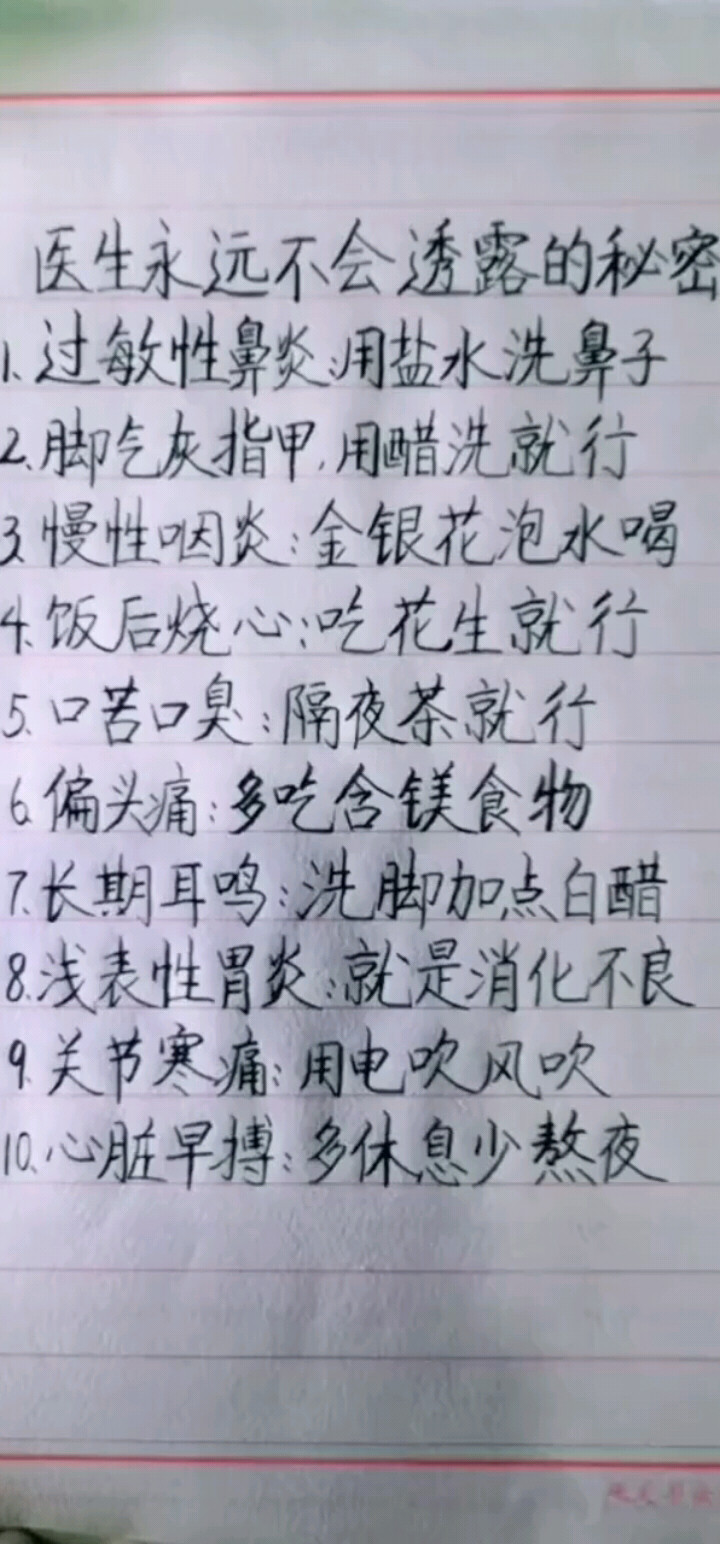 医生永远不会透露的秘密
1.过敏性鼻炎:用盐水洗鼻子
2.脚气灰指甲,用醋洗就行
3.慢性咽炎:金银花泡水喝
4.饭后烧心:吃花生就行
5.口苦口臭:隔夜茶就行
6.偏头痛:多吃含镁食物
7.长期耳鸣:洗脚加点白醋
8.浅表性胃炎:就是消化不良
9.关节寒痛:用电吹风吹
10.心脏早搏:多休息少熬夜